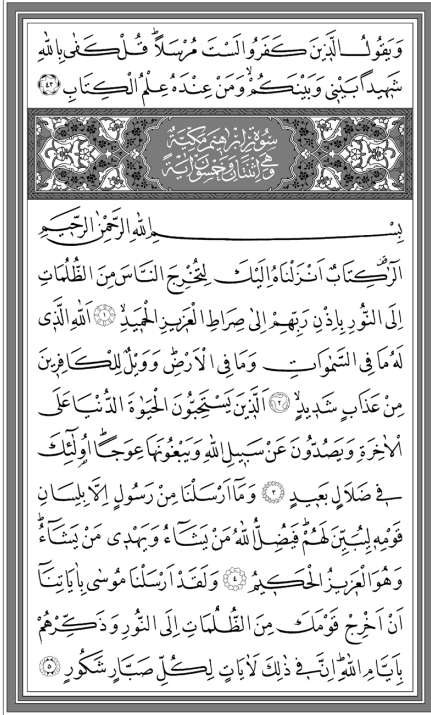 وَيَقُولُ الَّذ۪ينَ كَفَرُوا لَسْتَ مُرْسَلاًۜ قُلْ كَفٰى بِاللّٰهِ
شَه۪يداً بَيْن۪ي وَبَيْنَكُمْۙ وَمَنْ عِنْدَهُ عِلْمُ الْكِتَابِ ﴿٤٣﴾
سُورَةُ اِبْرٰه۪يمَ مَكِّيَّةٌ
وَهِيَ اِثْنَتَانِ وَخَمْسُونَ اٰيَةً
بِسْمِ اللّٰهِ الرَّحْمٰنِ الرَّح۪يمِ
الٓرٰ۠ كِتَابٌ اَنْزَلْنَاهُ اِلَيْكَ لِتُخْرِجَ النَّاسَ مِنَ الظُّلُمَاتِ
اِلَى النُّورِ بِاِذْنِ رَبِّهِمْ اِلٰى صِرَاطِ الْعَز۪يزِ الْحَم۪يدِۙ ﴿١﴾ اَللّٰهِ الَّذ۪ي
لَهُ مَا فِي السَّمٰوَاتِ وَمَا فِي الْاَرْضِۜ وَوَيْلٌ لِلْكَافِر۪ينَ
مِنْ عَذَابٍ شَد۪يدٍۙ ﴿٢﴾ اَلَّذ۪ينَ يَسْتَحِبُّونَ الْحَيٰوةَ الدُّنْيَا عَلَى
الْاٰخِرَةِ وَيَصُدُّونَ عَنْ سَب۪يلِ اللّٰهِ وَيَبْغُونَهَا عِوَجاًۜ اُو۬لٰٓئِكَ
ف۪ي ضَلَالٍ بَع۪يدٍ ﴿٣﴾ وَمَٓا اَرْسَلْنَا مِنْ رَسُولٍ اِلَّا بِلِسَانِ
قَوْمِه۪ لِيُبَيِّنَ لَهُمْۜ فَيُضِلُّ اللّٰهُ مَنْ يَشَٓاءُ وَيَهْد۪ي مَنْ يَشَٓاءُۜ
وَهُوَ الْعَز۪يزُ الْحَك۪يمُ ﴿٤﴾ وَلَقَدْ اَرْسَلْنَا مُوسٰى بِاٰيَاتِنَٓا
اَنْ اَخْرِجْ قَوْمَكَ مِنَ الظُّلُمَاتِ اِلَى النُّورِ وَذَكِّرْهُمْ
بِاَيَّامِ اللّٰهِۜ اِنَّ ف۪ي ذٰلِكَ لَاٰيَاتٍ لِكُلِّ صَبَّارٍ شَكُورٍ ﴿٥﴾